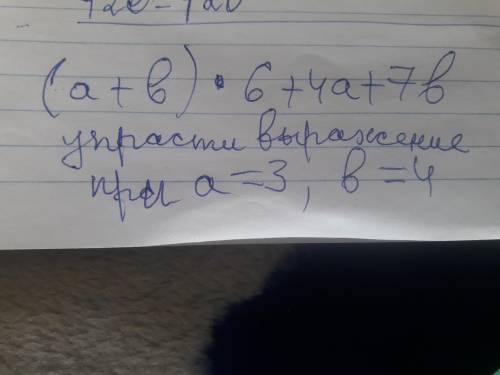 (а + в) · 6 + 4а + 7в
упрасти выражение
при а = 3, в = 4